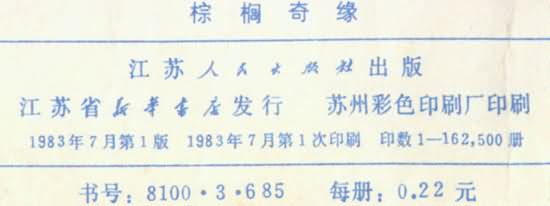 棕榈奇缘
江苏人民出版社出版
江苏省新华书店发行 苏州彩色印刷厂印刷
1983年7月第1版 1983年7月第1次印刷 印数1—162,500册
书号：8100·3·685 每册：0.22元